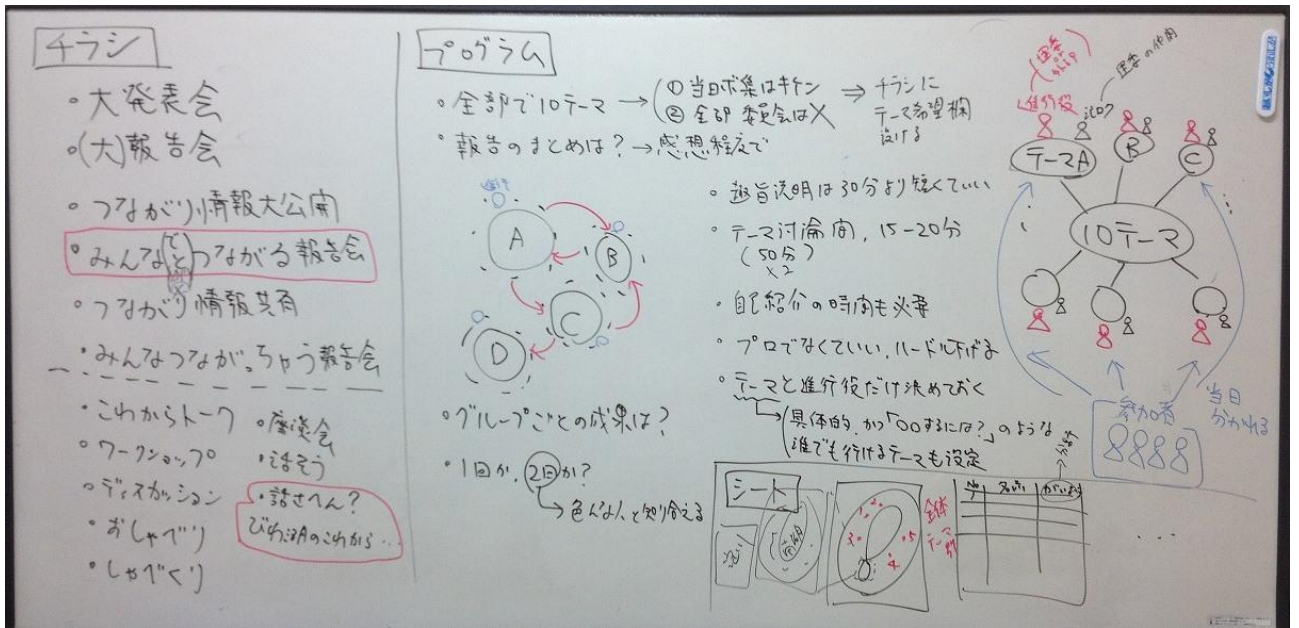 チラシ
・大発表会
・(大)報告会
・つながり情報大公開
・みんな(でと)つながる報告会
・つながり情報共有
・みんなつながっちゃう報告会
・これからトーク
・座談会
・ワークショップ
・話そう
・ディスカッション
・おしゃべり
・しゃべくり
・話せへん?
びわ湖のこれから…
プログラム
・全部で10テーマ → ①当日ボ集はキケン
②全部委員会はX
⇒ チラシに
テーマ希望欄
設ける
・報告のまとめは?→感想程度で
A
B
C
D
・グループごとの成果は?
・1回か、2回か?
→色んな人と知り合える
・趣旨説明は30分より短くていい
・テーマ討論間、15-20分
(50分)
×2
・自己紹介の時間も必要
・プロでなくていい、ハードル下げる
・テーマと進行役だけ決めておく
具体的、かつ「〇〇するには?」のような
誰でも行けるテーマも設定
運委
or
進行役
テーマA
B
C
10テーマ
参加者
当日
分かれる
シート
1
2
3
4
5
全体
テーマ
別
名前
…